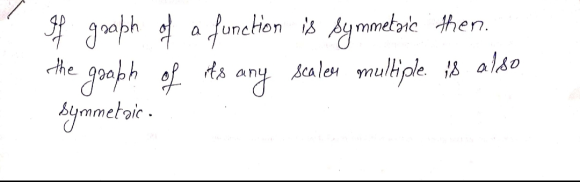 If graph of a function is symmetric then.
the graph of its any scaler multiple. is also
symmetric.